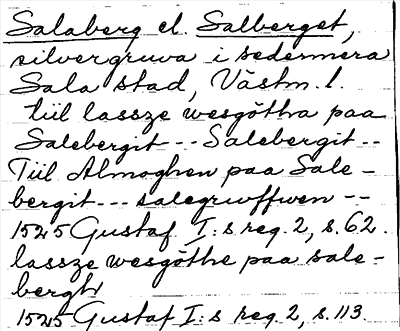 Salaberg el. Salberget,
silvergruva i sedermera
Sala stad, Västm. l.
tiil lassze wesgötha paa
Salebergit--- Salebergit--
Tiil Almoghen paa Sale-
bergit--- salegruffwen--
1525 Gustaf I:s reg. 2, s. 62.
lassze wesgöthe paa sale-
berght
1525 Gustaf I:s reg. 2, s. 113.